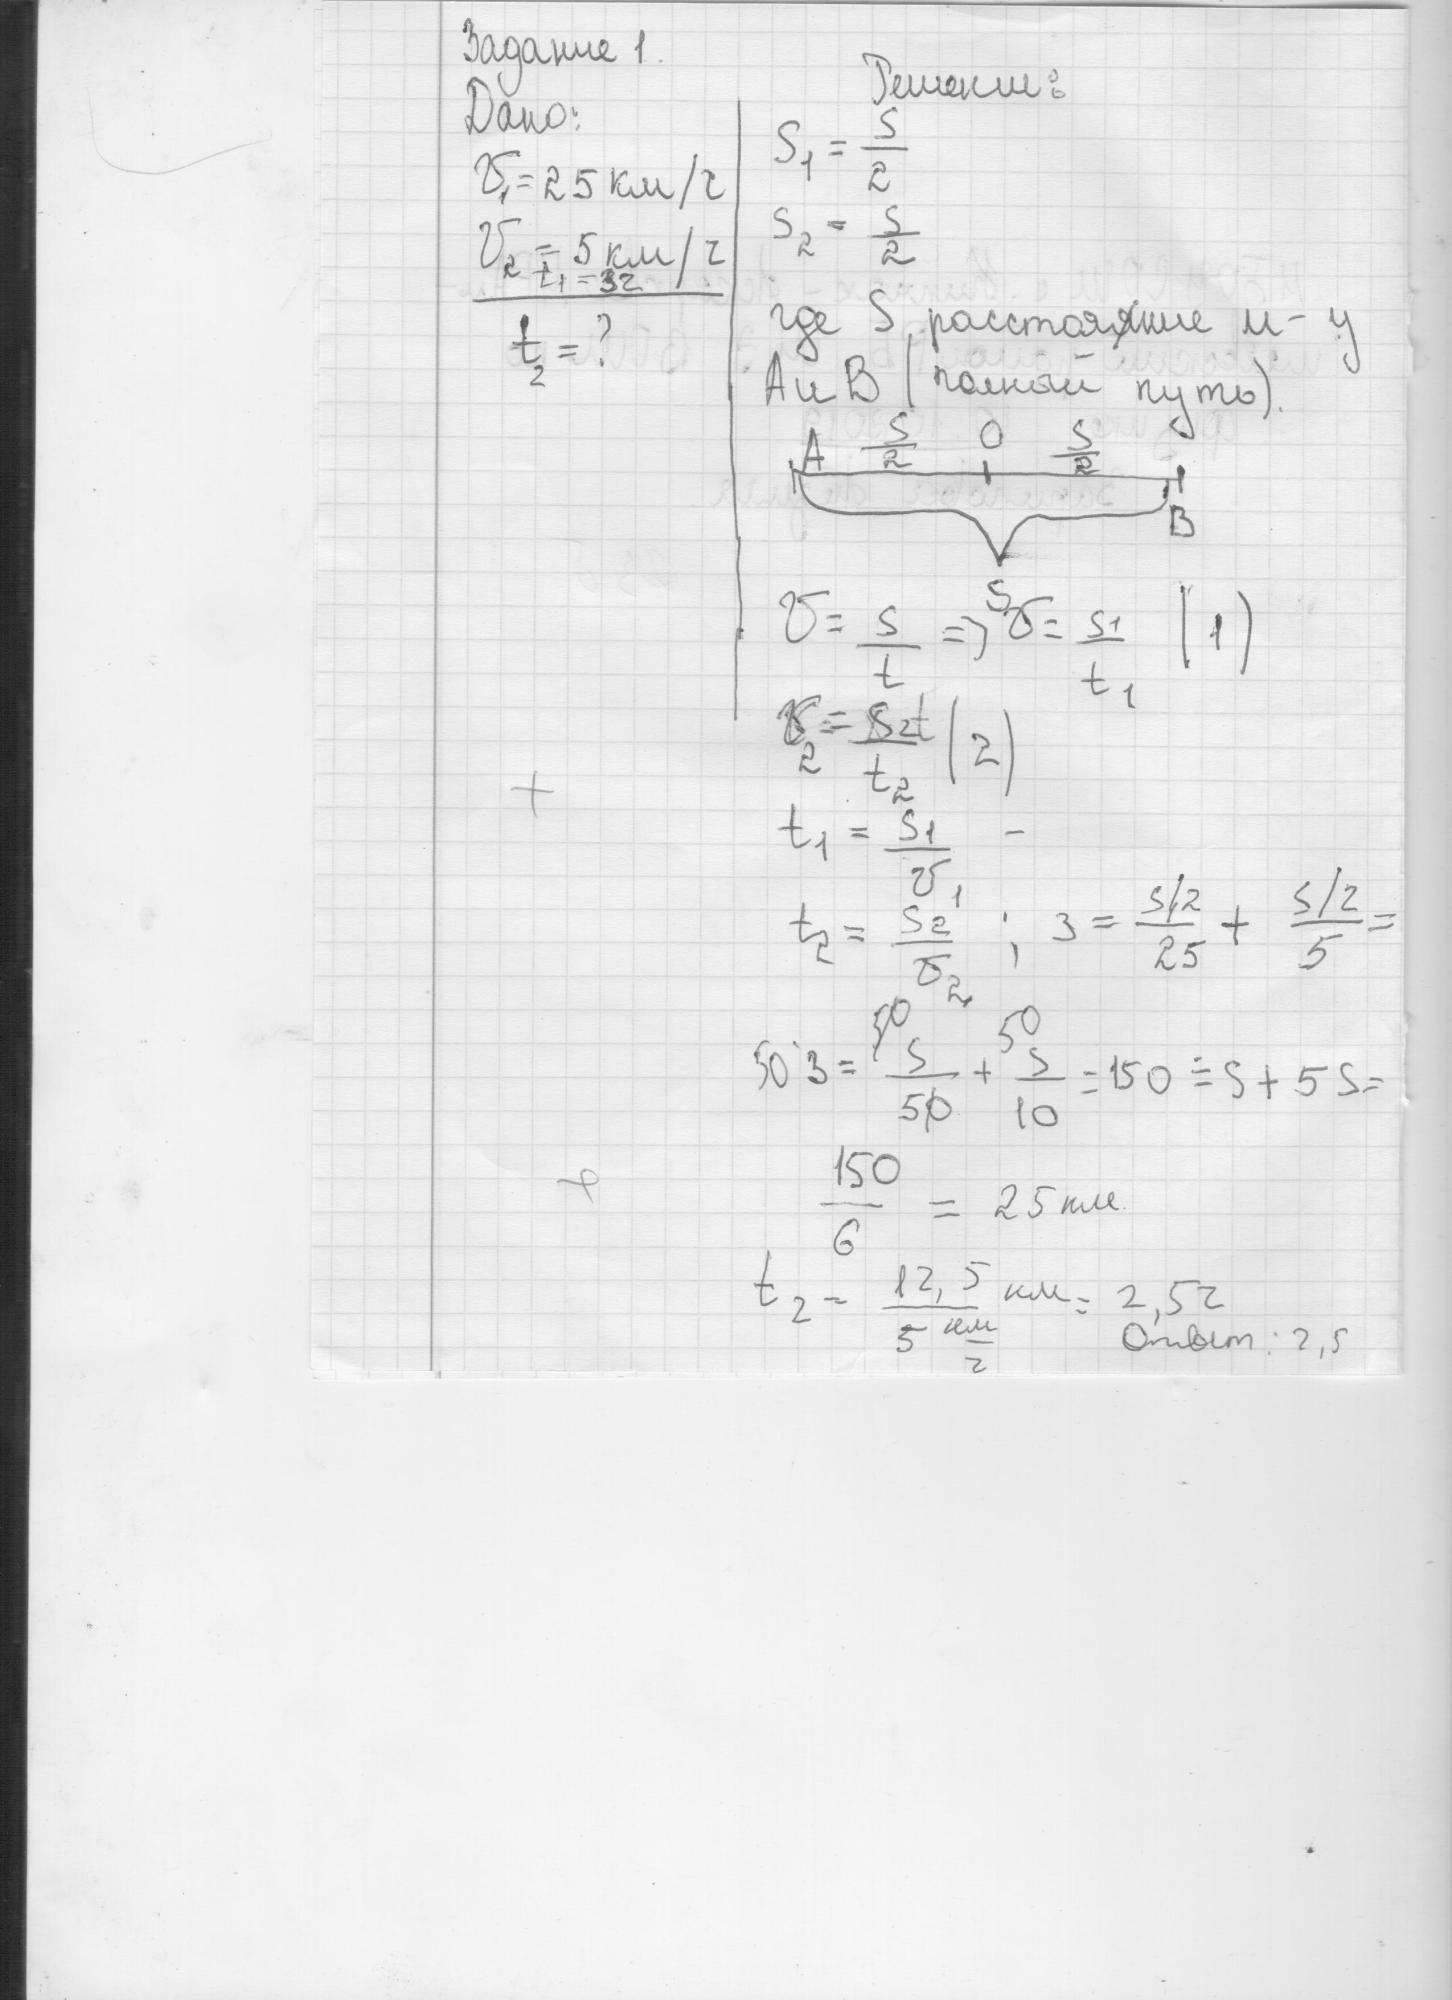 Задание 1.
Дано:
V₁ = 25 км/ч
V₂ = 5 км/ч
t₁ = 3ч
t₂ = ?
Решение:
S₁ = S/2
S₂ = S/2
где S расстояние м-у
А и В (полный путь).
A S/2 O S/2
B
S
V = S/t => V = S1/t₁ (1)
V₂ = S₂/t₂ (2)
t₁ = S₁/V₁ -
t₂ = S₂/V₂ ; 3 = S/2/25 + S/2/5 =
50·3 = 50 S/50 + 50 S/10 = 150 = S + 5S =
150/6 = 25 км
t₂ = 12,5 км / 5 км/ч = 2,5ч
Ответ: 2,5